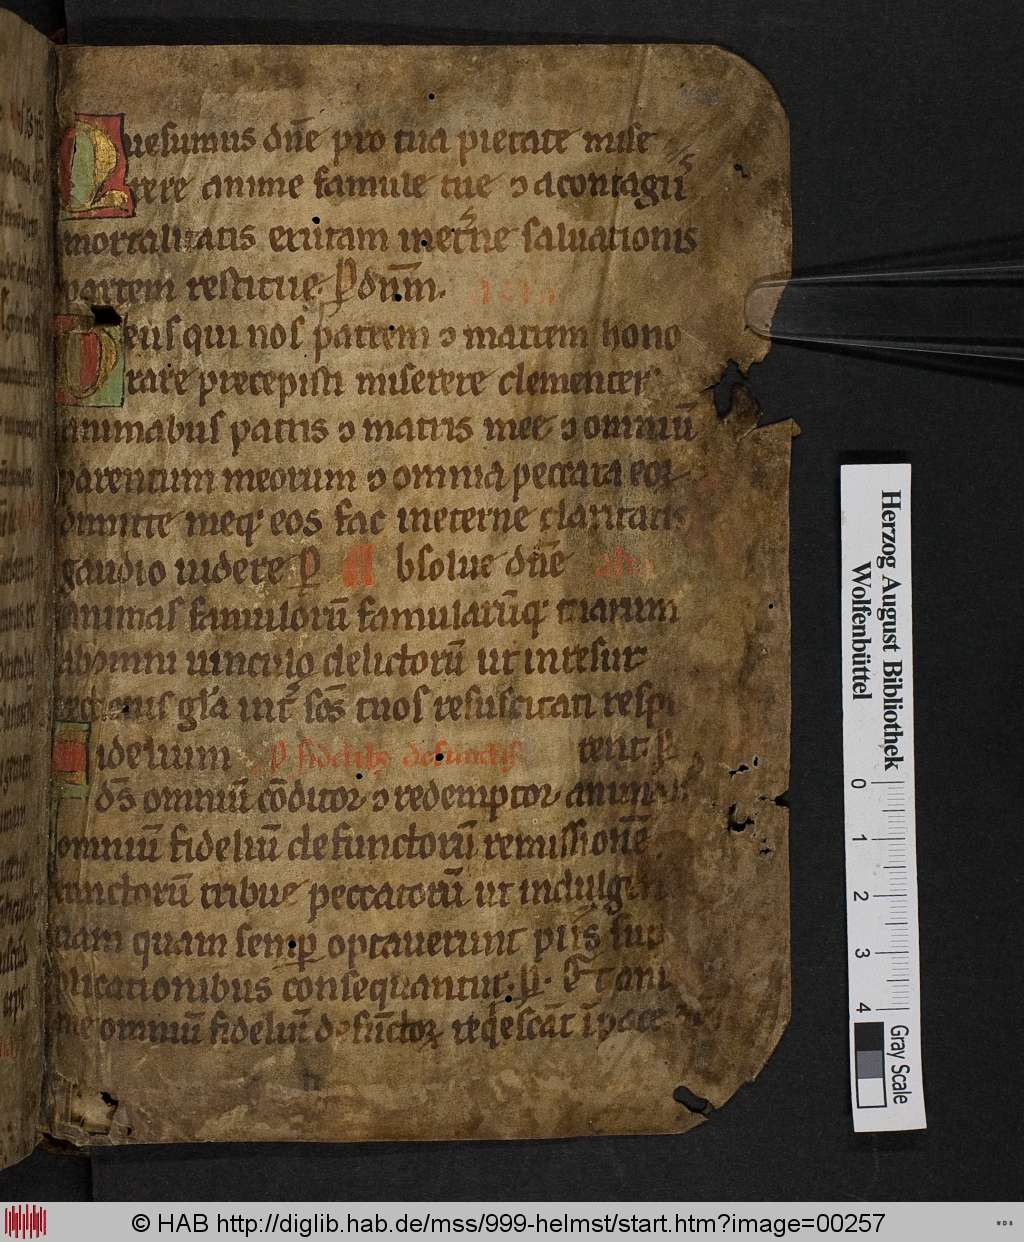 Quesumus dn̄e pro tua pietate mise
rere anime famule tue ⁊ a contagiis
mortalitatis exutam in et͛ne saluationis
partem restitue. P dn̄m. alia
Deus qui nos patrem ⁊ matrem hono
rare precepisti miserere clementer
animabus patris ⁊ matris mee ⁊ omniū
parentum meorum ⁊ omnia peccata eoꝝ
dimitte meqꝫ eos fac in eterne claritatis
gaudio uidere P Absolue dn̄e alia
animas famulorū famularūqꝫ tuarum
ab omni uinculo delictorū ut in resur
rectionis gl̄a int͛ sc̄os tuos resuscitati respi
Fidelium P fidelibꝫ defunctis rent. P
ds̄ omniū cōditor ⁊ redemptor animabus
omniū fidelium defunctorū remissionē
cunctorū tribue peccatorū ut indulgen
tiam quam semꝑ optauerunt piis sup
plicationibus consequantur. P. Et ani
me omniū fideliū defūctoꝝ reqͥescāt ī pace
Herzog August Bibliothek
Wolfenbüttel
0 1 2 3 4
Gray Scale
© HAB http://diglib.hab.de/mss/999-helmst/start.htm?image=00257